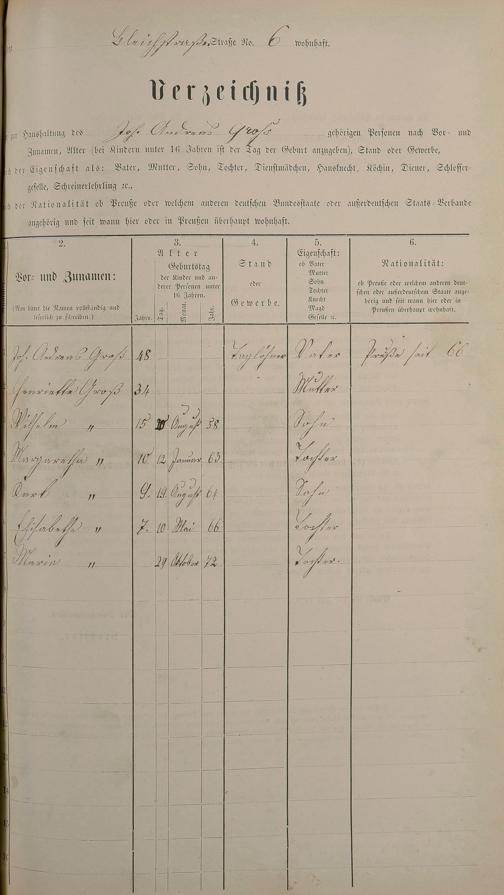 Bleichstraße Straße No. 6 wohnhaft.
Verzeichniß
zur Haushaltung des Joh. Andreas Gross gehörigen Personen nach Vor- und
Zunamen, Alter (bei Kindern unter 16 Jahren ist der Tag der Geburt anzugeben), Stand oder Gewerbe,
der Eigenschaft als: Vater, Mutter, Sohn, Tochter, Dienstmädchen, Hausknecht, Köchin, Diener, Schlosser-
geselle, Schreinerlehrling ꝛc.,
der Nationalität ob Preuße oder welchem anderen deutschen Bundesstaate oder außerdeutschen Staats-Verbande
angehörig und seit wann hier oder in Preußen überhaupt wohnhaft.
2. 3. 4. 5. 6.
Vor- und Zunamen:
(Man bittet die Namen vollständig und
leserlich zu schreiben.)
Alter
Geburtstag
der Kinder und an-
derer Personen unter
16 Jahren.
Jahre. Tag. Monat. Jahr.
Stand
oder
Gewerbe.
Eigenschaft:
ob Vater
Mutter
Sohn
Tochter
Knecht
Magd
Geselle ꝛc.
Nationalität:
ob Preuße oder welchem anderen deut-
schen oder außerdeutschem Staat ange-
hörig und seit wann hier oder in
Preußen überhaupt wohnhaft.
Joh. Andreas Groß 48 Taglöhner Vater Preuße seit 66
Henriette Groß 34 Mutter
Wilhelm " 15 August 58 Sohn
Margaretha " 10 12 Januar 63 Tochter
" 9. 19 August 64 Sohn
Elisabetha " 7. 10 Mai 66 Tochter
Maria " 29 Oktober 72 Tochter.